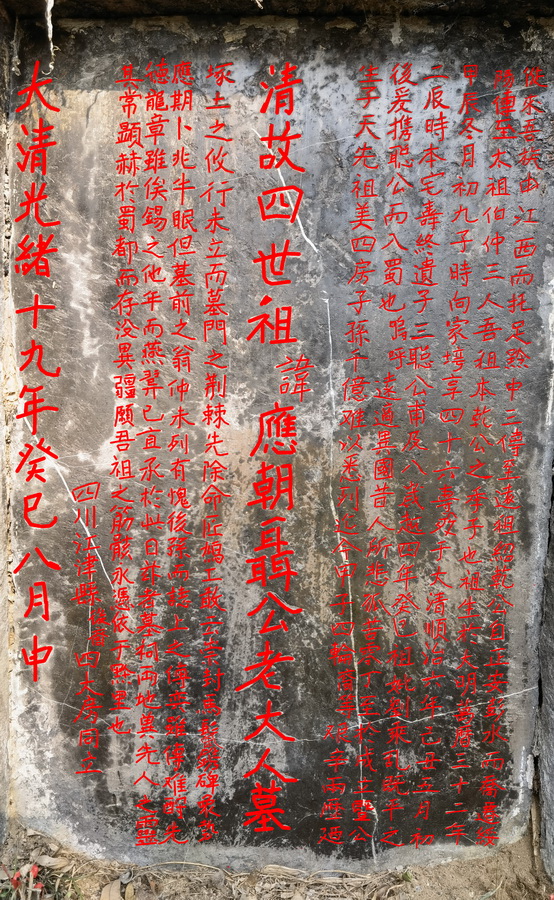 從來吾族由江西而托足黔中三傳至遠祖紹乾公自正安彭水而喬遷綏
陽傳至太祖伯仲三人吾祖本乾公之季子也祖生於大明萬曆三十二年
甲辰冬月初九子時向家塆享四十六壽歿于大清順治六年己丑五月初
二辰時本宅壽終遺子三聰公甫及八歲越四年癸巳祖妣劉乘亂既平之
後爰携聰公而入蜀也嗚呼遠適異國昔人所悲孤苦零丁至於成立暨公
生子天先祖美四房子孫千億难以悉列迄今甲子四輪
清故四世祖諱應朝聶公老大人墓
塚土之攸行未立而墓門之荆棘先除命匠
應期卜兆牛眠但墓前之翁仲未列有愧後孫而誌上之傳
碩龍章雖俟錫之他年而燕翼已宜承於此日茲者墓祠兩地奠先人之靈
其常顯赫於蜀都而存沒異疆願吾祖之筋骸永憑依于黔里也
四川江津縣後裔四大房同立
大清光緒十九年癸巳八月申